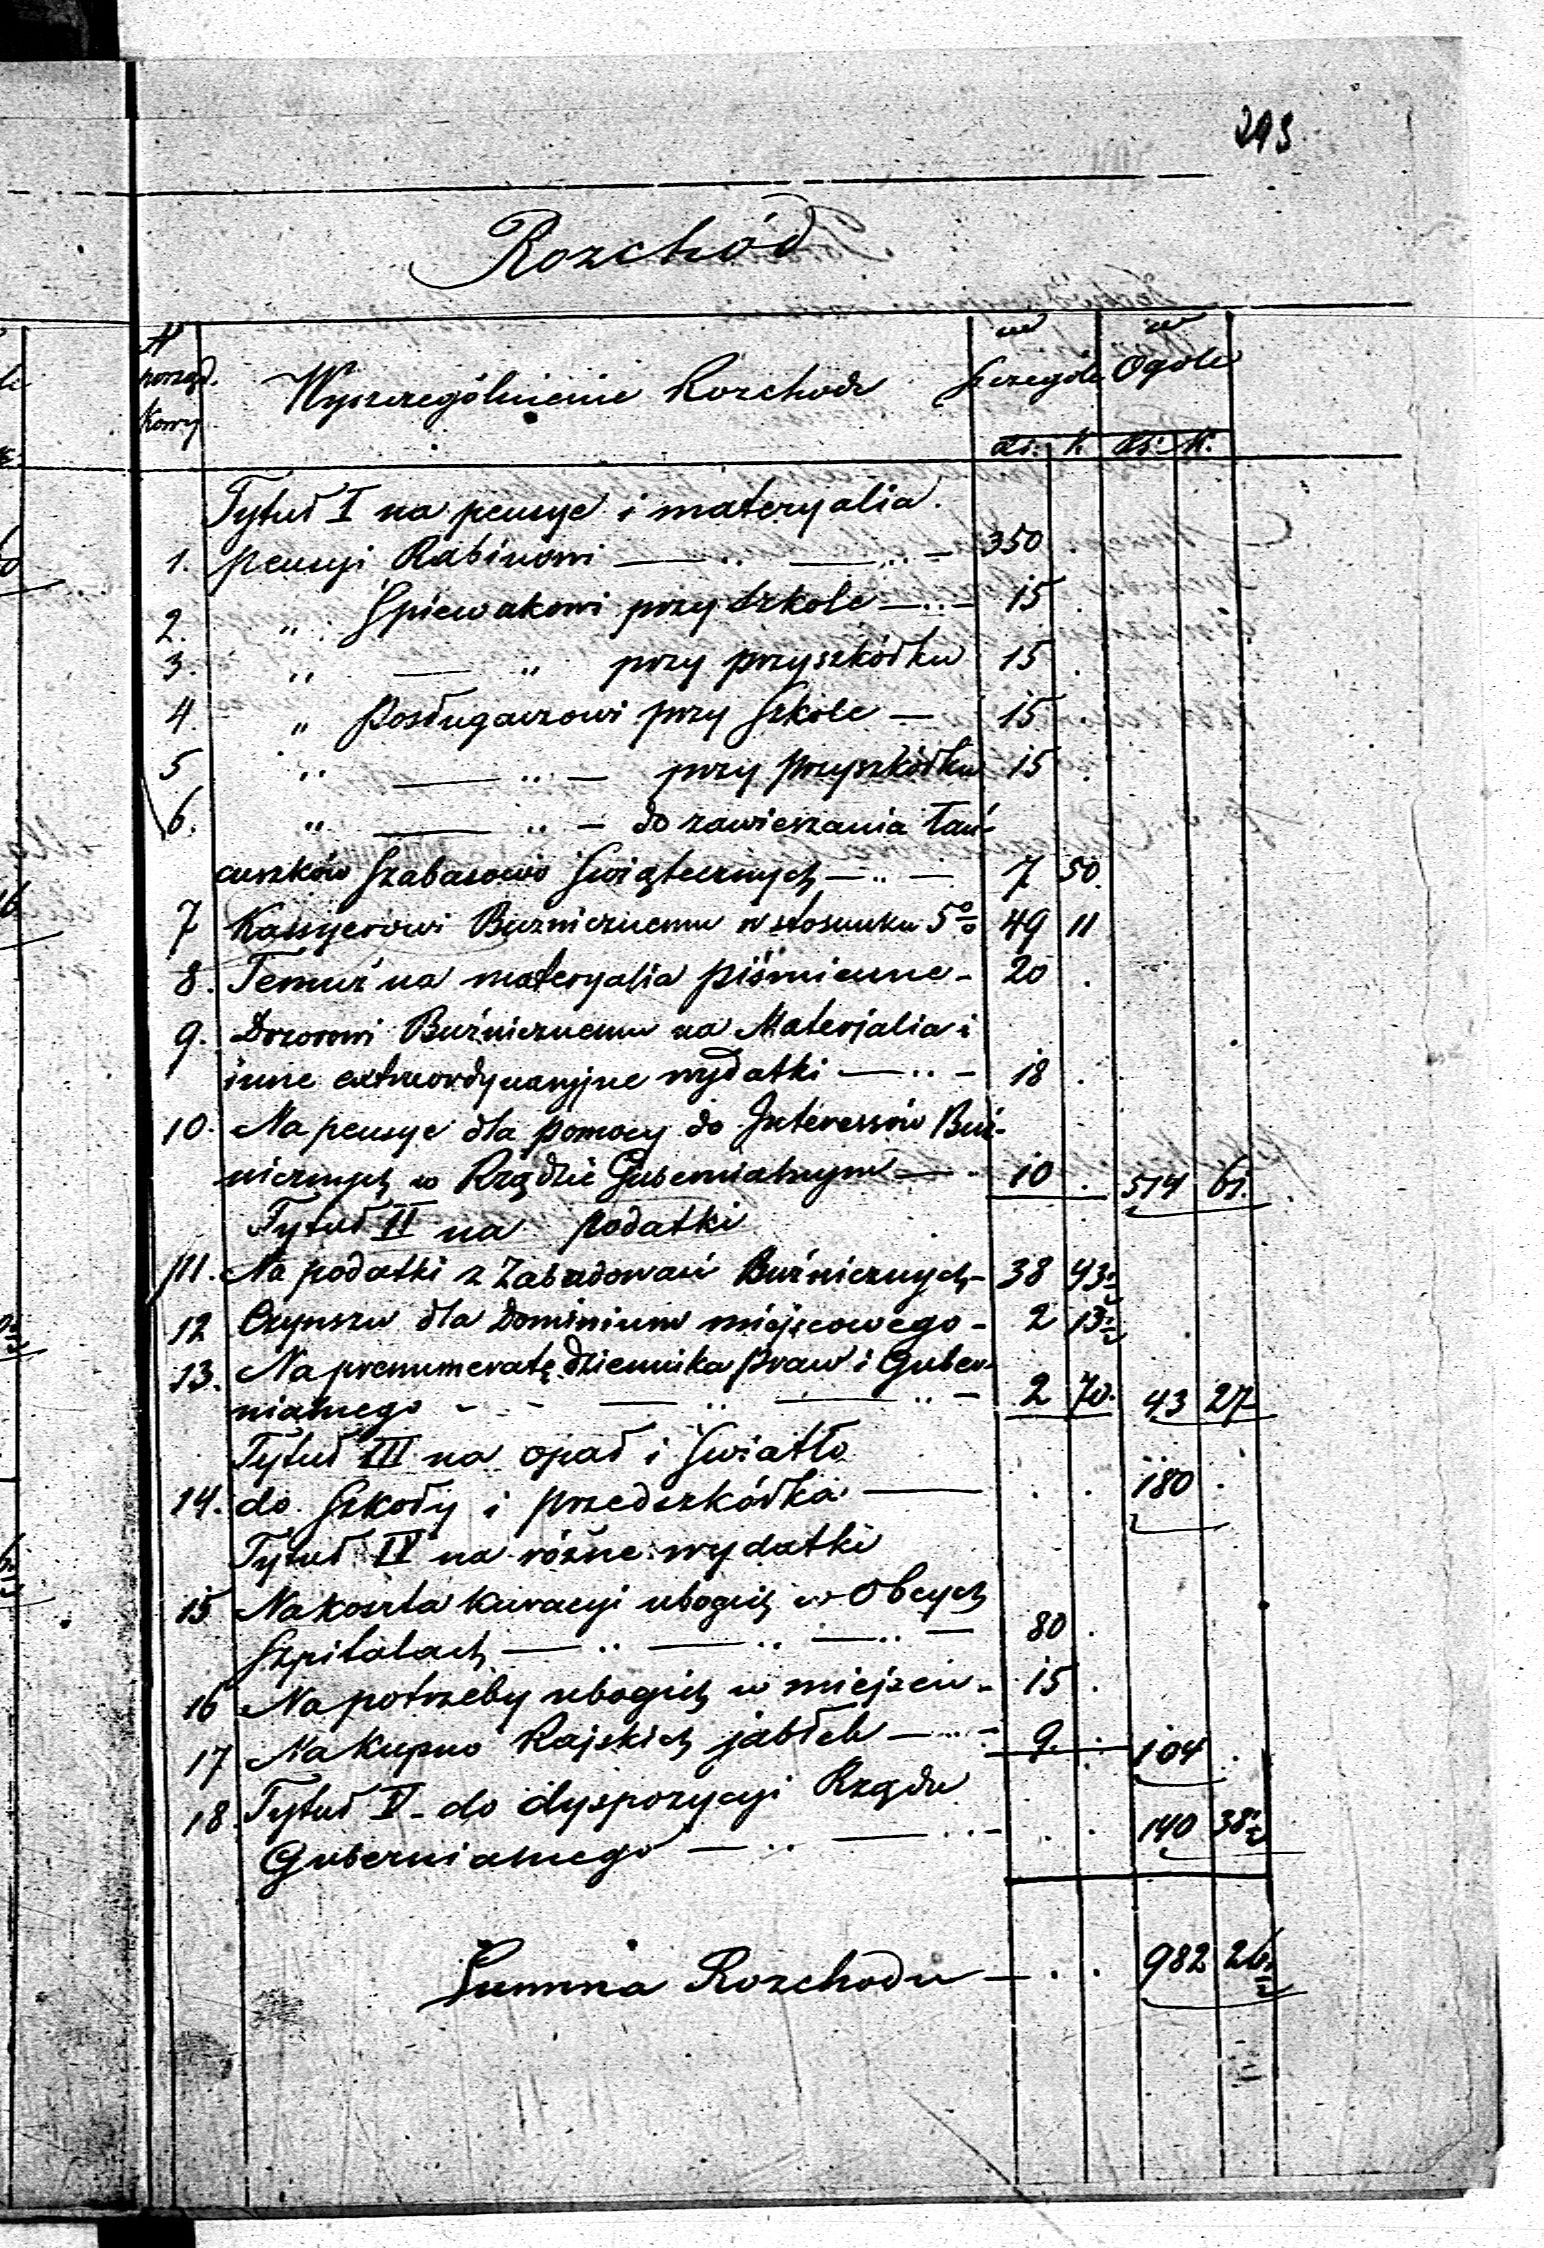 293
Rozchód
N porząd. kowy
Wyszczególnienie Rozchodu
w Szczególe
w Ogóle
Rs. k. Rs. k.
Tytuł I na pensye i materyalia.
1. pensyi Rabinowi — .. — .. — 350 .
2. " Śpiewakowi przy Szkole — .. — 15 .
3. " — " przy przyszkółku 15 .
4 " Posługaczowi przy Szkole — 15 .
5 " — .. — przy przyszkółku 15 .
6. " — .. — do zawieszania łań-
cuszków Szabasowo Świątecznych — .. — 7 50.
7 Kassyerowi Bużnicznemu w stosunku 5% 49 11
8. Temuż na materyalia piśmienne - 20 .
9. Dozorowi Bużnicznemu na Materjalia i
inne extraordynaryjne wydatki — .. — 18 .
10. Na pensye dla pomocy do Interessów Buź-
nicznych w Rządzie Gubernialnym — . 10 . 514 61.
Tytuł II na podatki
11. Na podatki z Zabudowań Bużnicznych - 38 43½
12 Czynszu dla Dominium miejscowego - 2 13½
13. Na prenumeratę dziennika praw i Guber-
nialnego - - — .. — .. — 2 70. 43 27
Tytuł III na opał i Światło
14. do Szkoły i przedszkółka — . . 180 .
Tytuł IV na różne wydatki
15 Na koszta kuracyi ubogich w Obcych
Szpitalach — .. — .. — .. — 80 .
16 Na potrzeby ubogich w miejscu - 15 .
17 Na kupno Rajskich jabłek — .. — 9. . 104 .
18. Tytuł V - do dyspozycyi Rządu
Gubernialnego — .. — .. — . . 140 38½
Summa Rozchodu — . . 982 26½